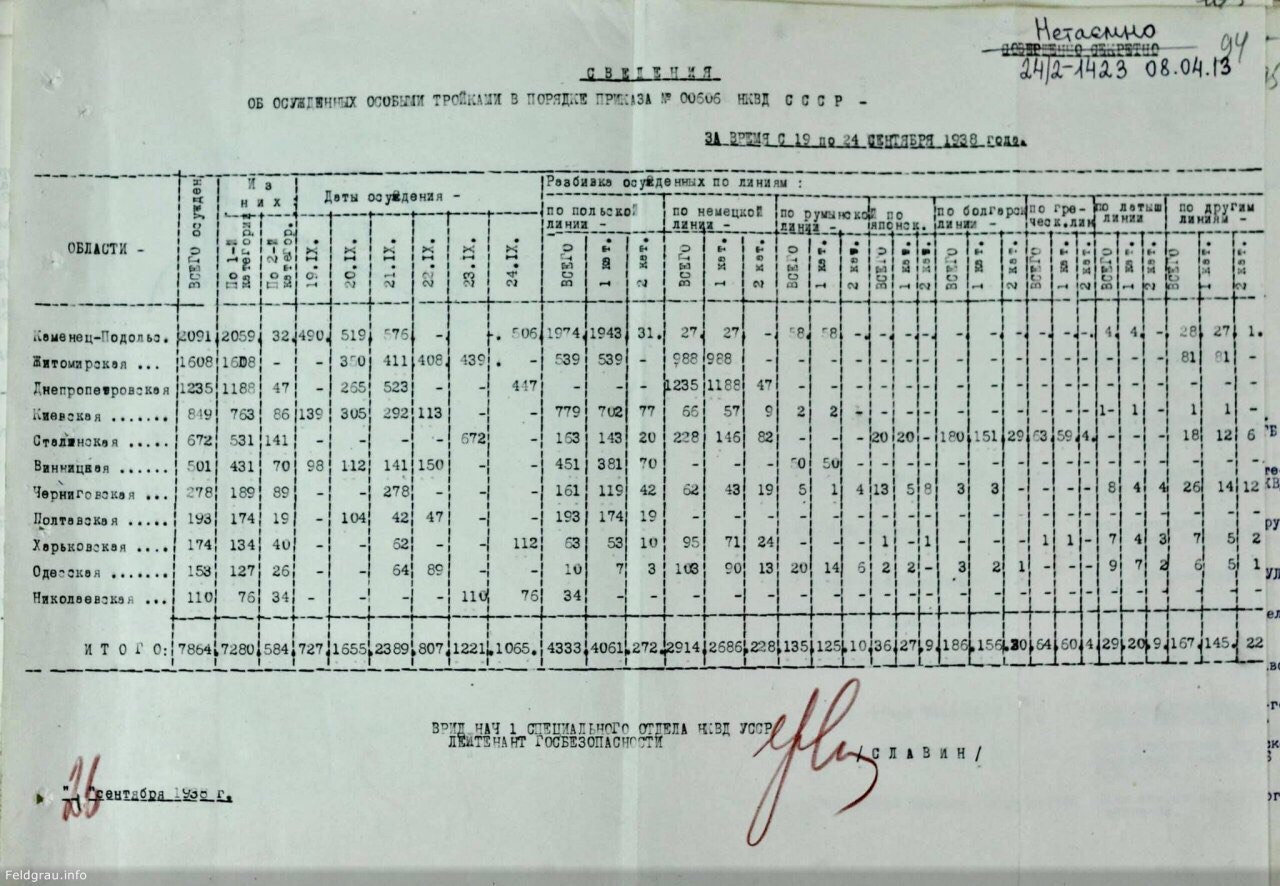 Нетаємно
СОВЕРШЕННО СЕКРЕТНО
94
24/2-1423 08.04.13
СВЕДЕНИЯ
ОБ ОСУЖДЕННЫХ ОСОБЫМИ ТРОЙКАМИ В ПОРЯДКЕ ПРИКАЗА № 00606 НКВД СССР -
ЗА ВРЕМЯ С 19 по 24 СЕНТЯБРЯ 1938 года.
ОБЛАСТИ - ВСЕГО осужден Из них: По 1-й категории По 2-й категор. Даты осуждения - 19.IX. 20.IX. 21.IX. 22.IX. 23.IX. 24.IX.
Разбивка осужденных по линиям :
по польской линии - ВСЕГО 1 кат. 2 кат.
по немецкой линии - ВСЕГО 1 кат. 2 кат.
по румынской линии - ВСЕГО 1 кат. 2 кат.
по японск. ВСЕГО 1 кат. 2 кат.
по болгарск линии - ВСЕГО 1 кат. 2 кат.
по гре-ческ.лин ВСЕГО 1 кат. 2 кат.
по латыш линии ВСЕГО 1 кат. 2 кат.
по другим линиям - ВСЕГО 1 кат. 2 кат.
Каменец-Подольс. 2091 2059 32 490 519 576 - . 506 1974 1943 31. 27 27 - 58 58 - - - - - - - - - - 4 4 - 28 27 1.
Житомирская ... 1608 1608 - - 350 411 408 439 . - 539 539 - 988 988 - - - - - - - - - - - - - - - - 81 81 -
Днепропетровская 1235 1188 47 - 265 523 - - 447 - - - 1235 1188 47 - - - - - - - - - - - - - - - - - -
Киевская ....... 849 763 86 139 305 292 113 - - 779 702 77 66 57 9 2 2 - - - - - - - - - - 1 1 - 1 1 -
Сталинская ..... 672 531 141 - - - - 672 - 163 143 20 228 146 82 - - - 20 20 - 180 151 29 63 59 4 - - - 18 12 6
Винницкая ...... 501 431 70 98 112 141 150 - - 451 381 70 - - - 50 50 - - - - - - - - - - - - - - - -
Черниговская ... 278 189 89 - - 278 - - - 161 119 42 62 43 19 5 1 4 13 5 8 3 3 - - - - 8 4 4 26 14 12
Полтавская ..... 193 174 19 - 104 42 47 - - 193 174 19 - - - - - - - - - - - - - - - - - - - - -
Харьковская .... 174 134 40 - - 62 - - 112 63 53 10 95 71 24 - - - 1 - 1 - - - 1 1 - 7 4 3 7 5 2
Одесская ....... 153 127 26 - - 64 89 - - 10 7 3 103 90 13 20 14 6 2 2 - 3 2 1 - - - 9 7 2 6 5 1
Николаевская ... 110 76 34 - - - - 110 76 34 - - - - - - - - - - - - - - - - - - - - - -
ИТОГО: 7864 7280 584 727 1655 2389 807 1221 1065. 4333 4061 272 2914 2686 228 135 125 10 36 27 9 186 156 30 64 60 4 29 20 9 167 145 22
ВРИД НАЧ 1 СПЕЦИАЛЬНОГО ОТДЕЛА НКВД УССР
ЛЕЙТЕНАНТ ГОСБЕЗОПАСНОСТИ
/СЛАВИН/
"26" сентября 1938 г.
Feldgrau.info